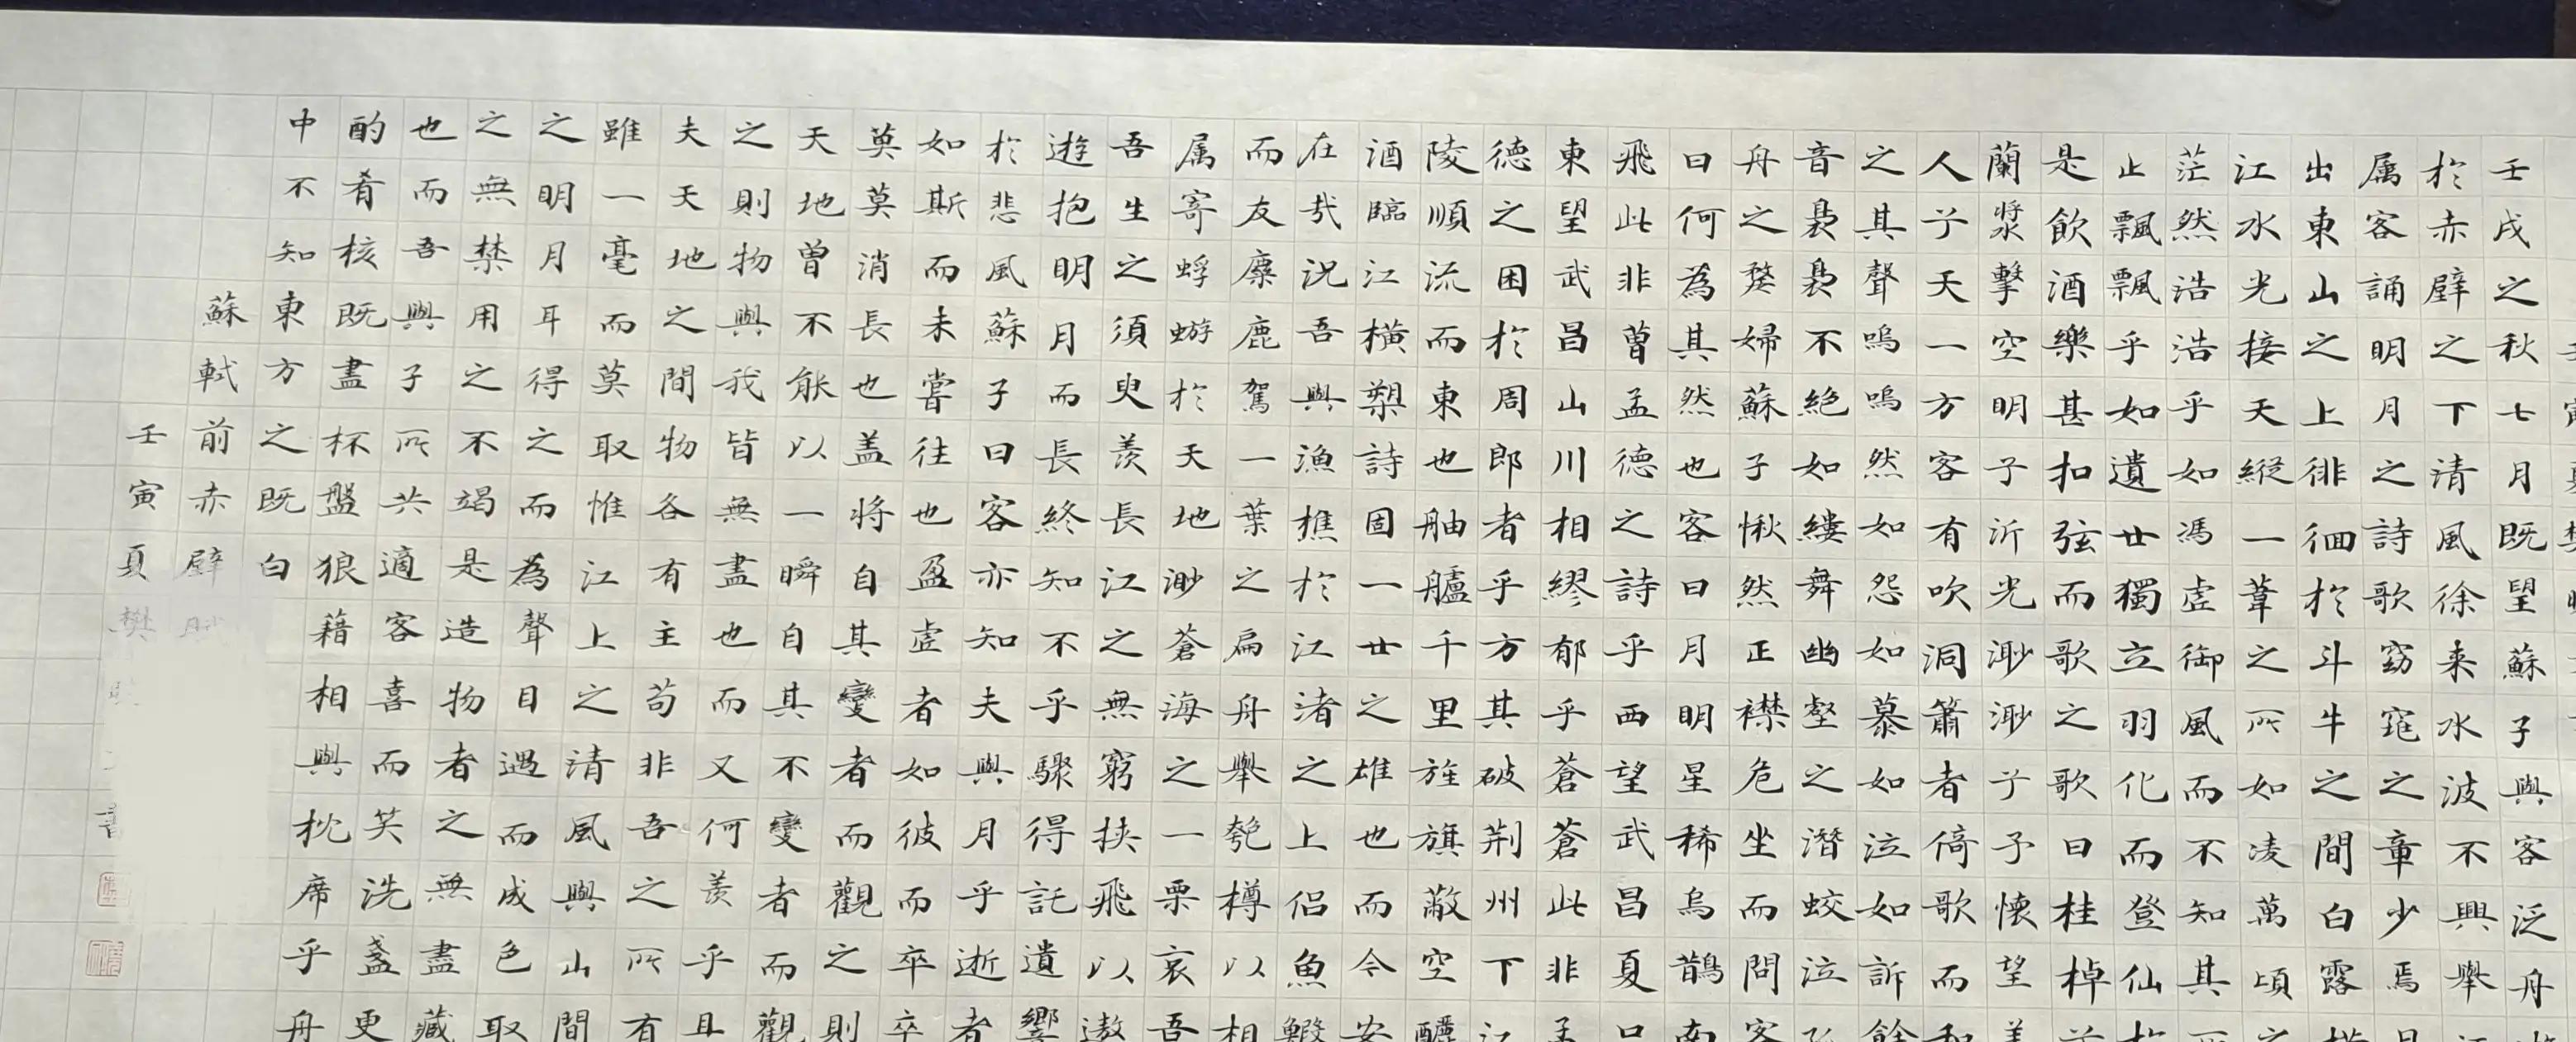 壬戌之秋七月既望蘇子與客泛舟
於赤壁之下清風徐来水波不興舉
属客誦明月之詩歌窈窕之章少焉
出東山之上徘徊於斗牛之間白露
江水光接天縱一葦之所如凌萬頃
茫然浩浩乎如馮虛御風而不知其
止飄飄乎如遺世獨立羽化而登仙
是飲酒樂甚扣弦而歌之歌曰桂棹
蘭漿擊空明兮泝光渺渺兮予懷望
人兮天一方客有吹洞簫者倚歌而和
之其聲嗚嗚然如怨如慕如泣如訴餘
音裊裊不絕如縷舞幽壑之潛蛟泣
舟之嫠婦蘇子愀然正襟危坐而問客
曰何為其然也客曰月明星稀烏鵲南
飛此非曹孟德之詩乎西望武昌夏口
東望武昌山川相繆郁乎蒼蒼此非孟
德之困於周郎者乎方其破荊州下江
陵順流而東也舳艫千里旌旗蔽空釃
酒臨江橫槊詩固一世之雄也而今安
在哉況吾與漁樵於江渚之上侣魚鰕
而友麋鹿駕一葉之扁舟舉匏樽以相
属寄蜉蝣於天地渺蒼海之一粟哀吾
吾生之須臾羨長江之無窮挾飛以遨
遊抱明月而長終知不乎驟得託遺響
於悲風蘇子曰客亦知夫與月乎逝者
如斯而未嘗往也盈虛者如彼而卒卒
莫莫消長也盖將自其變者而觀之則
天地曾不能以一瞬自其不變者而觀
之則物與我皆無盡也而又何羨乎且
夫天地之間物各有主苟非吾之所有
雖一毫而莫取惟江上之清風與山間
之明月耳得之而為聲目遇而成色取
之無禁用之不竭是造物者之無盡藏
也而吾與子所共適客喜而笑洗盞更
酌肴核既盡杯盤狼藉相與枕席乎舟
中不知東方之既白
蘇軾前赤壁賦
壬寅夏樊書